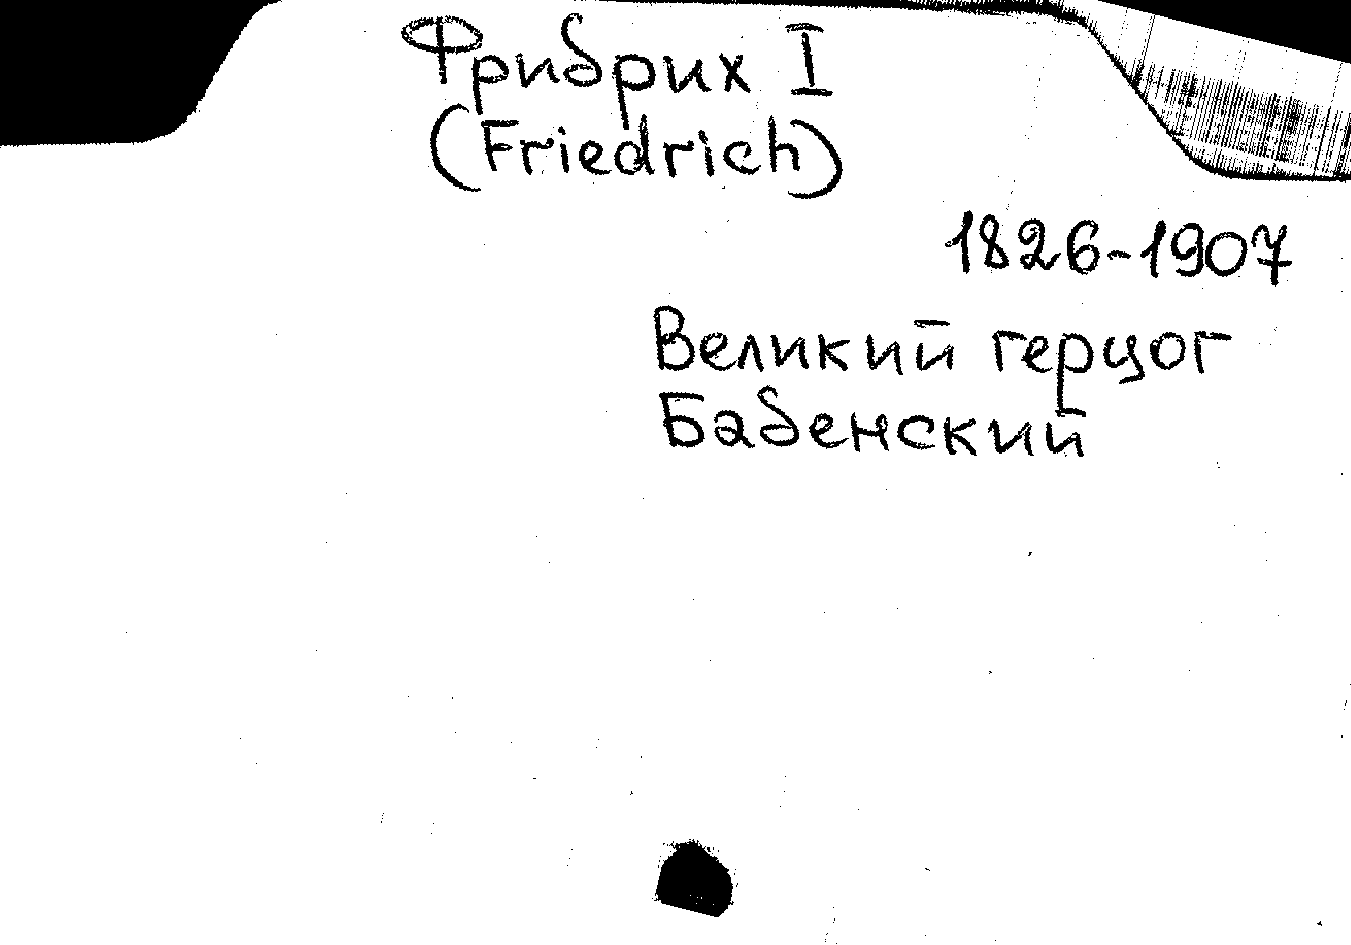 Фридрих I
(Friedrich)
1826-1907
Великий герцог
Баденский